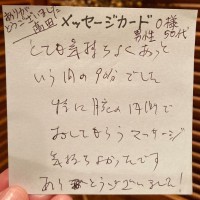 ありがとう
ございました
メッセージカード O様
男性 50代
とても気持ちよくあっと
いう間の90分でした
特に腕の内側で
おしてもらうマッサージ
気持ちよかったです
ありがとうございました!